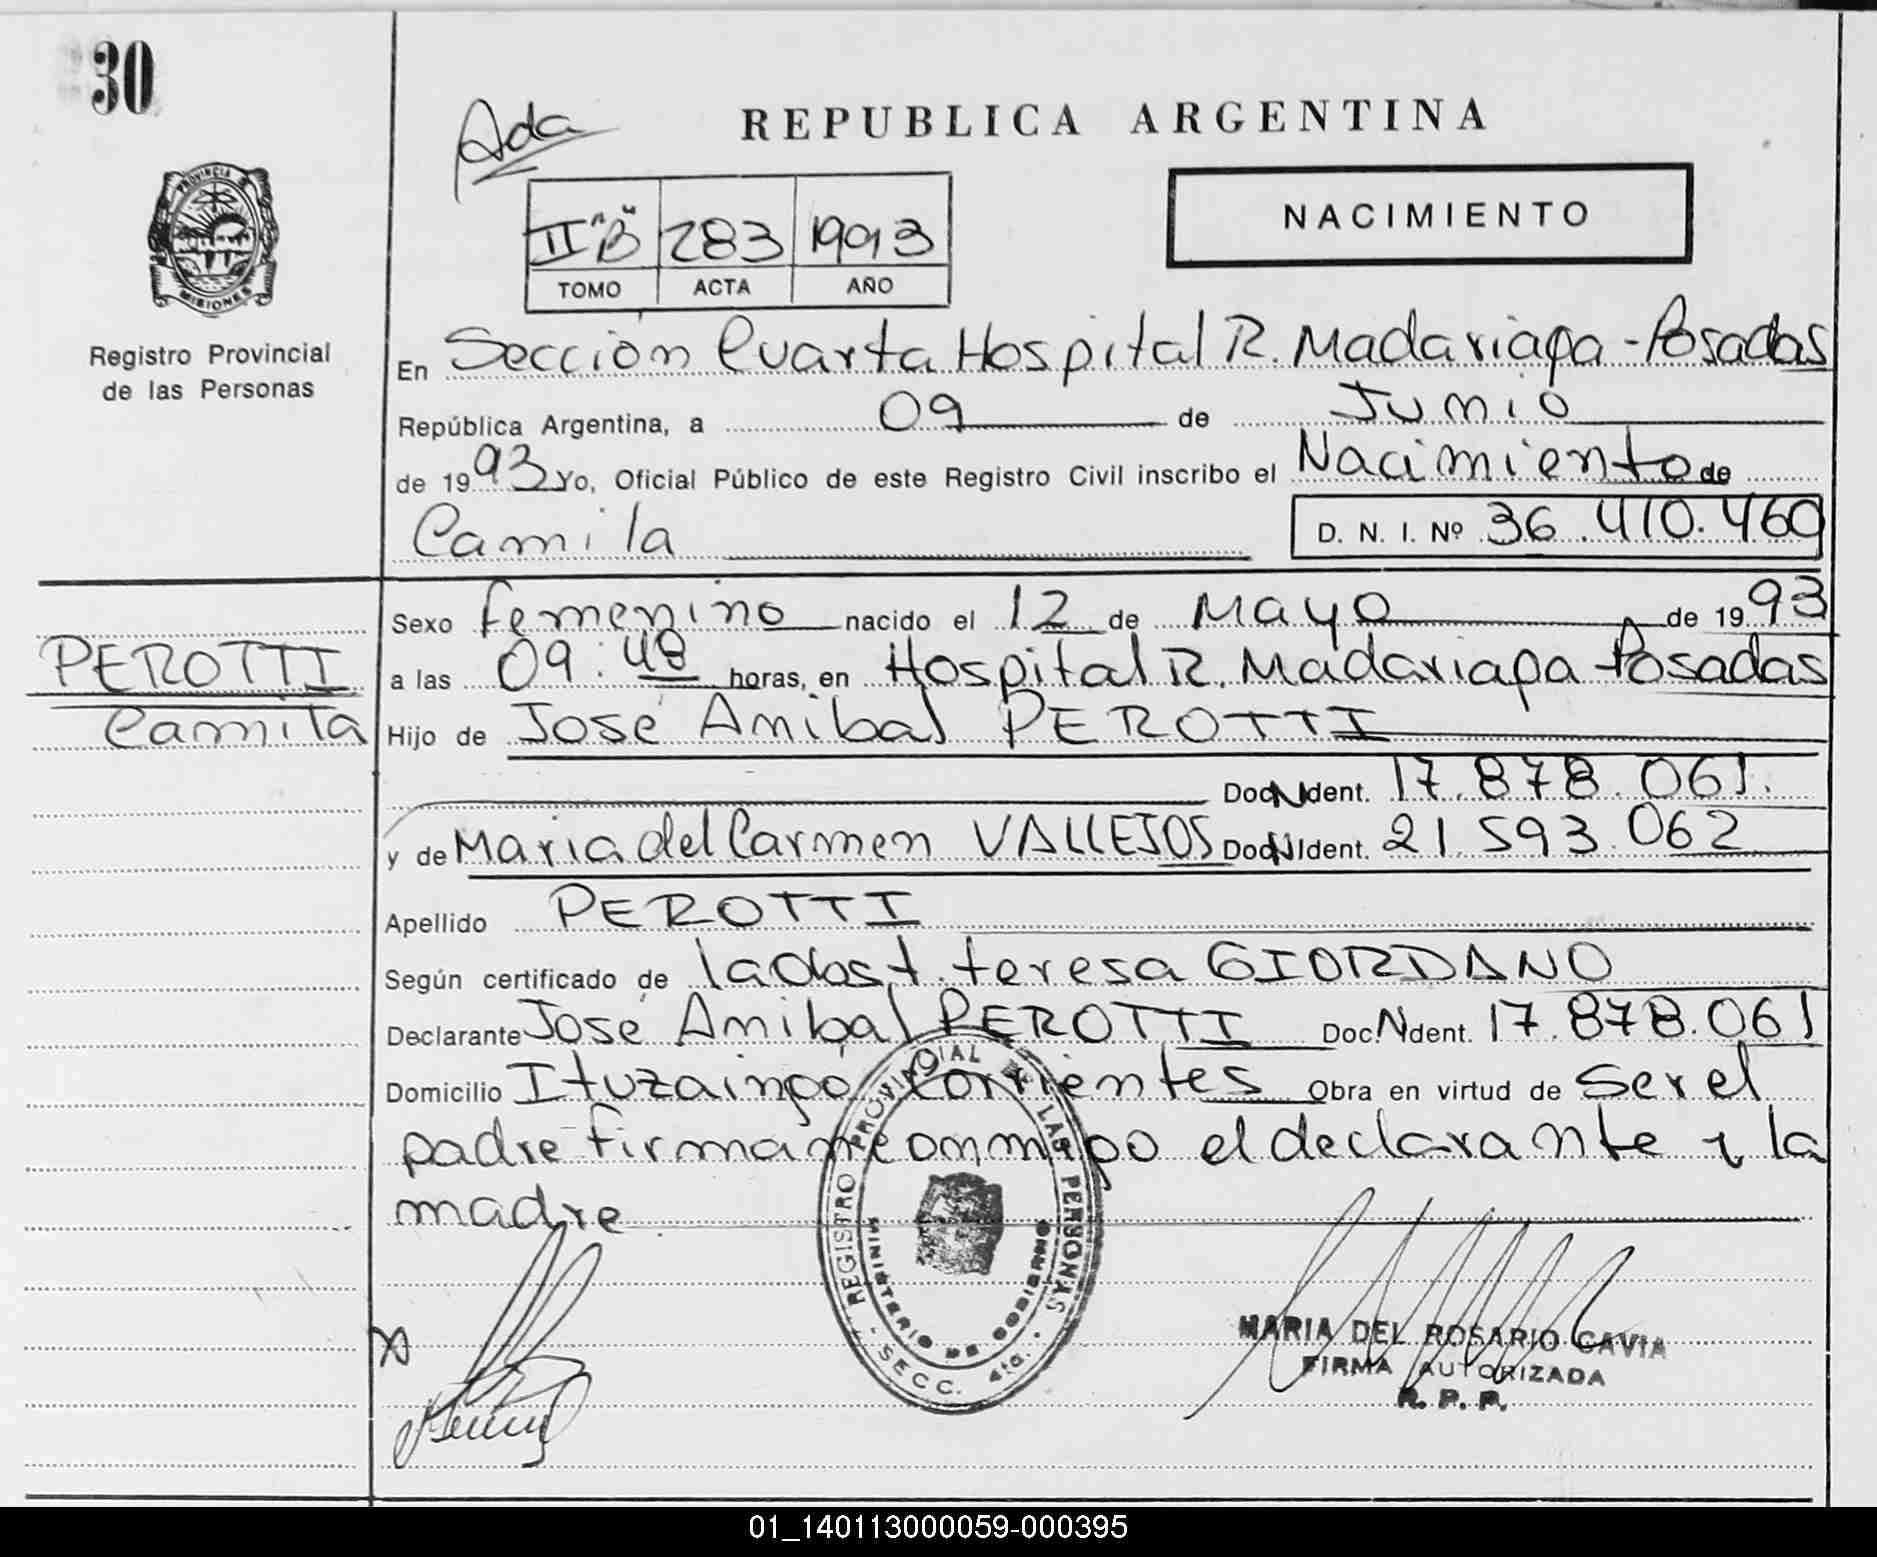 30
Ada
REPUBLICA ARGENTINA
PROVINCIA DE
MISIONES
II "B" 283 1993
TOMO ACTA AÑO
NACIMIENTO
Registro Provincial
de las Personas
En Sección Cuarta Hospital R. Madariaga - Posadas
República Argentina, a 09 de Junio
de 1993 Yo, Oficial Público de este Registro Civil inscribo el Nacimiento de
Camila D. N. I. Nº 36.410.460
Sexo femenino nacido el 12 de Mayo de 1993
PEROTTI
Camila
a las 09:48 horas, en Hospital R. Madariaga - Posadas
Hijo de José Anibal PEROTTI
Doc N Ident. 17.878.061.
y de Maria del Carmen VALLEJOS Doc N Ident. 21.593.062
Apellido PEROTTI
Según certificado de la obst. teresa GIORDANO
Declarante José Anibal PEROTTI Doc. N Ident. 17.878.061
Domicilio Ituzaingó Corrientes Obra en virtud de Ser el
padre firman conmigo el declarante y la
madre
REGISTRO PROVINCIAL DE LAS PERSONAS
MINISTERIO DE GOBIERNO
SECC. 4ta.
MARIA DEL ROSARIO CAVIA
FIRMA AUTORIZADA
R. P. P.
01_140113000059-000395